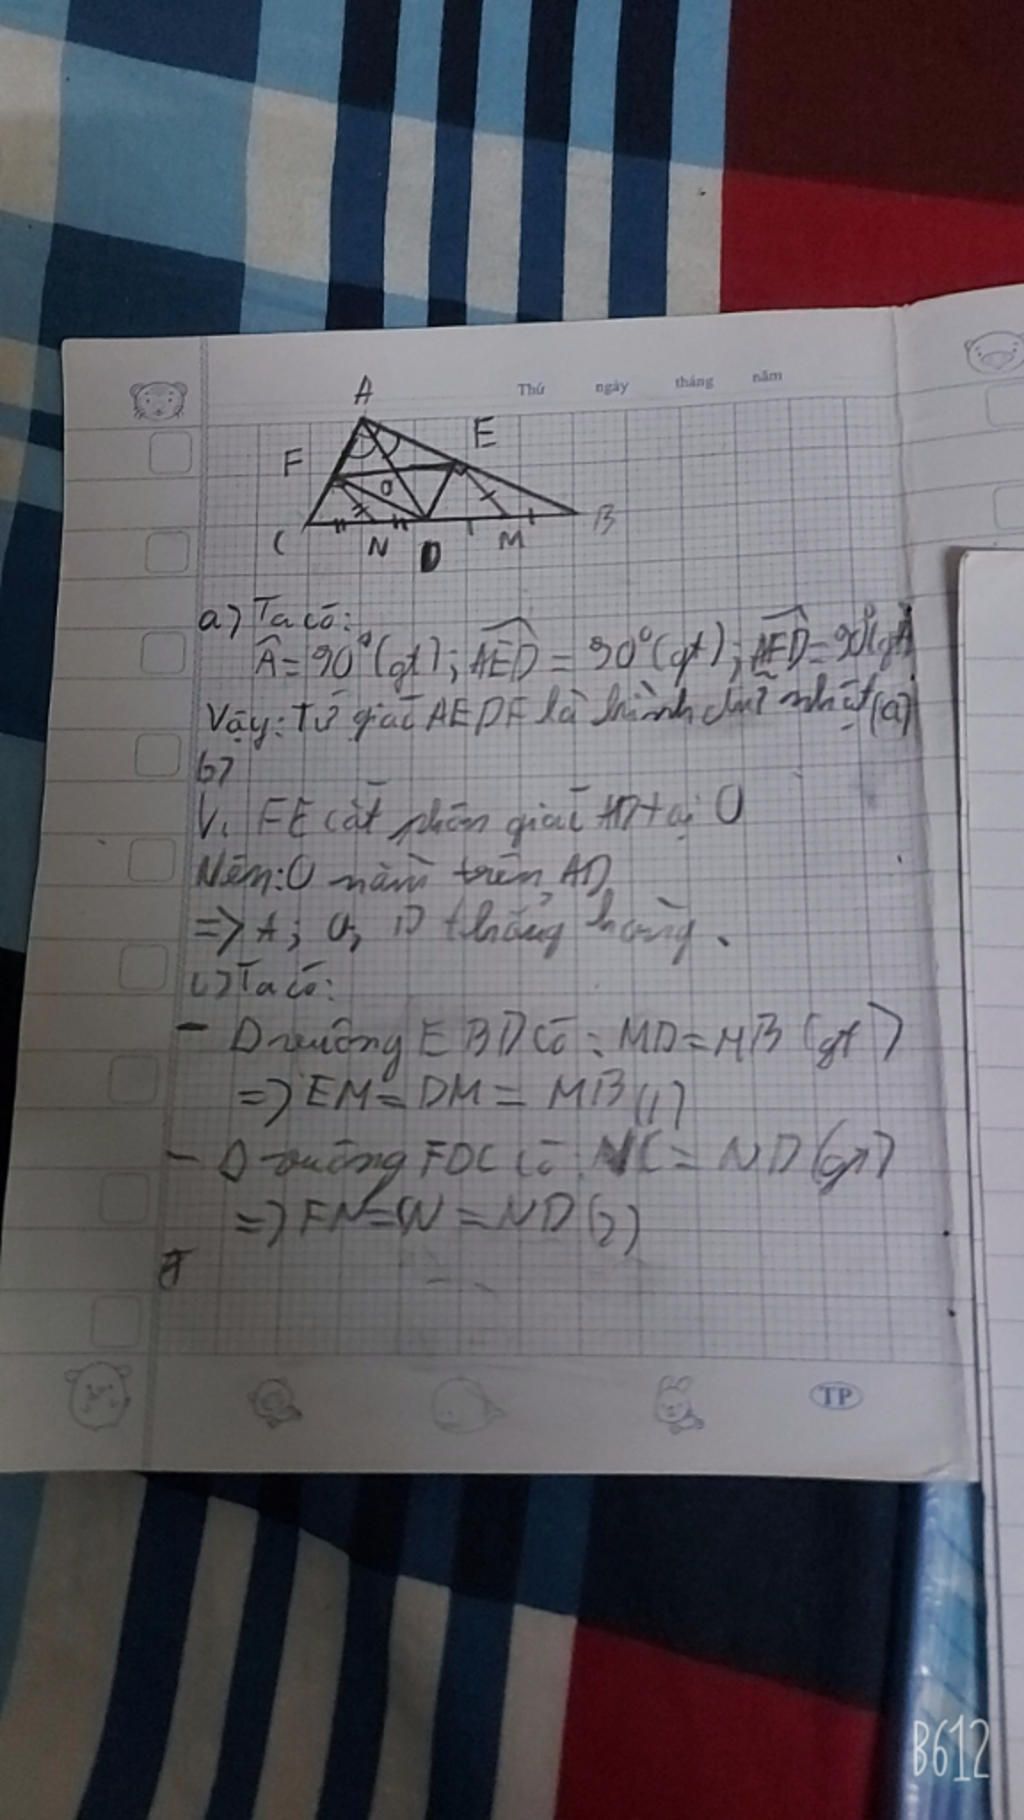 Thứ ngày tháng năm
A
E
F
O
C N D M B
a) Ta có:
Â = 90° (gt); AED = 90° (gt); AFD = 90° (gt)
Vậy: Tứ giác AEDF là hình chữ nhật (a)
b)
Vì FE cắt phân giác AD tại O
Nên: O nằm trên AD
=> A; O, D thẳng hàng.
c) Ta có:
- Δ vuông EBD có: MD = MB (gt)
=> EM = DM = MB (1)
- Δ vuông FDC có: NC = ND (gt)
=> FN = CN = ND (2)
TP
B612